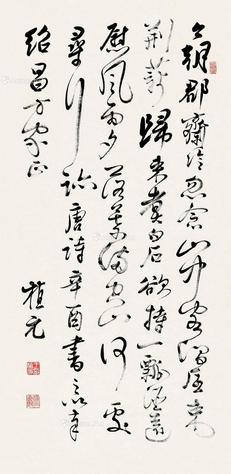 今朝郡齋冷忽念山中客澗底束
荆薪歸來煮白石欲持一瓢酒遠
慰風雨夕落葉滿空山何處
尋行跡唐詩辛酉書
紹昌方家正
植元